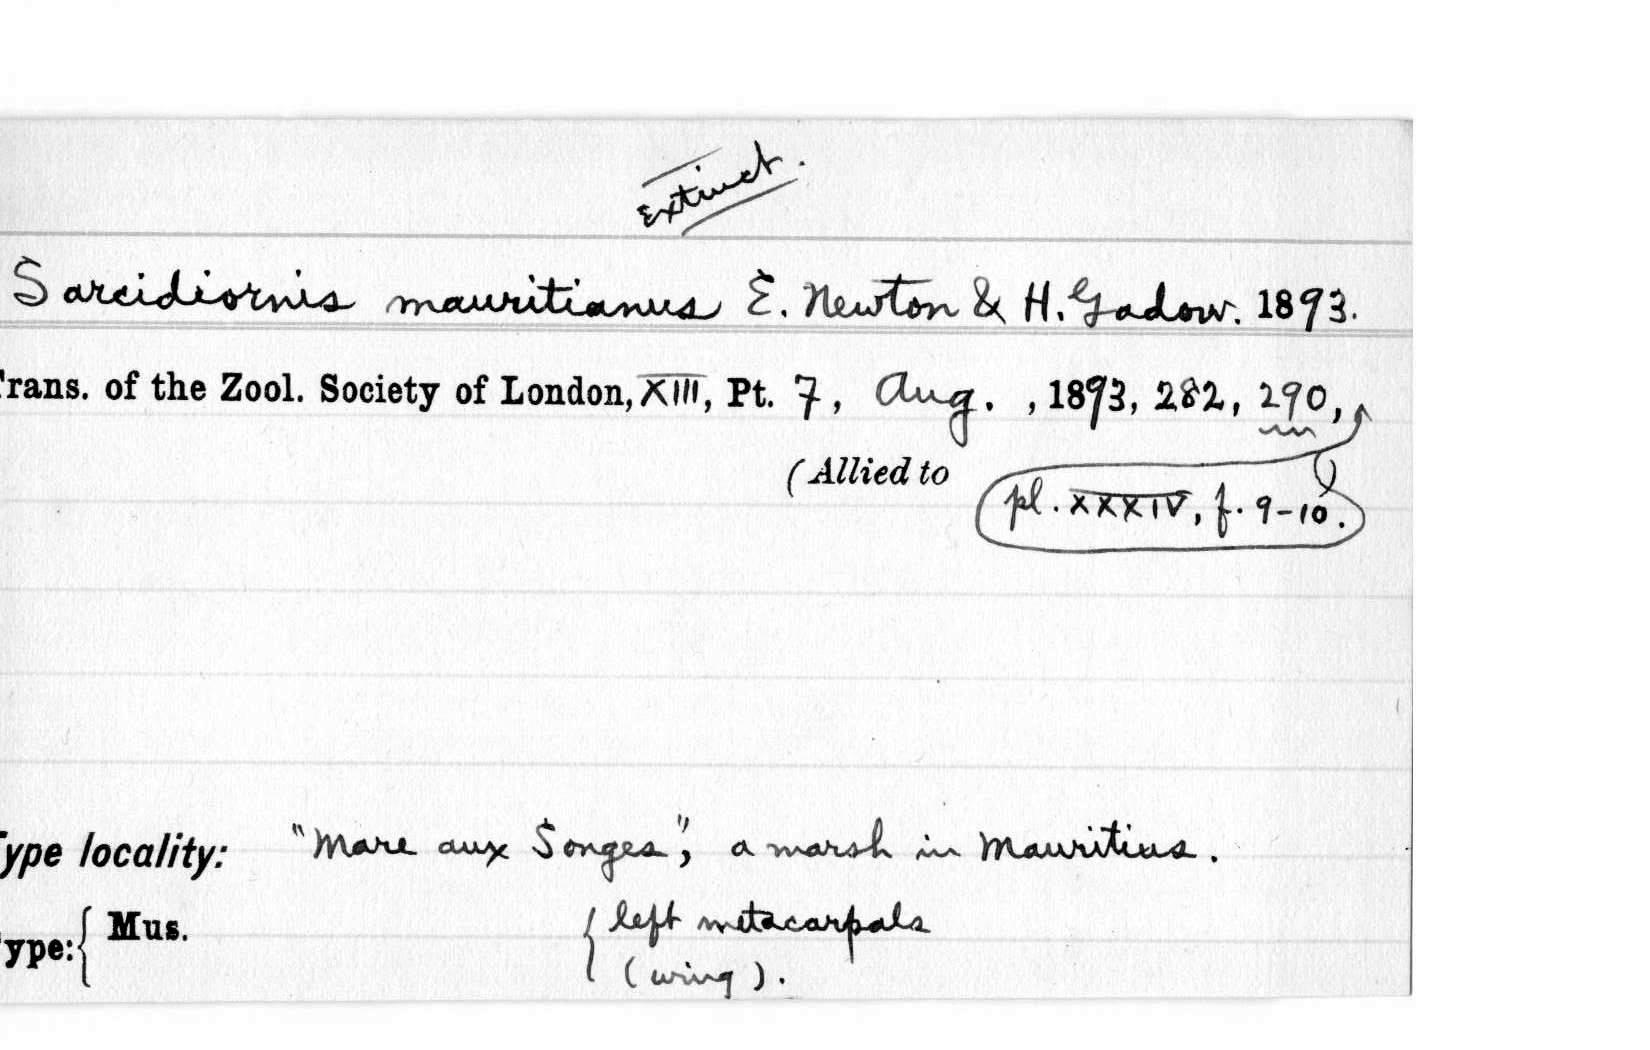 Extinct.
Sarcidiornis mauritianus E. Newton & H. Gadow. 1893.
Trans. of the Zool. Society of London, XIII, Pt. 7, Aug. , 1893, 282, 290,
(Allied to
pl. XXXIV, f. 9-10.
Type locality: "Mare aux Songes", a marsh in Mauritius.
Type: { Mus. { left metacarpals
(wing).